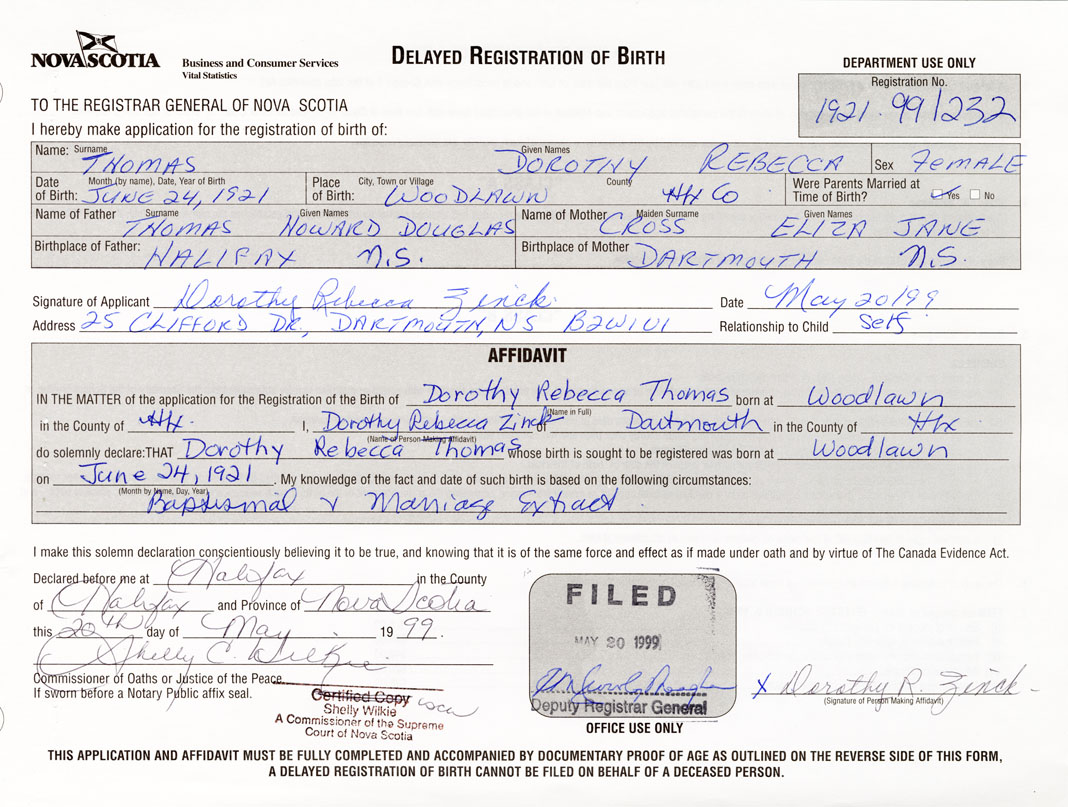 NOVA SCOTIA
Business and Consumer Services
Vital Statistics
DELAYED REGISTRATION OF BIRTH
DEPARTMENT USE ONLY
Registration No.
1921 . 991232
TO THE REGISTRAR GENERAL OF NOVA SCOTIA
I hereby make application for the registration of birth of:
Name: Surname THOMAS Given Names DOROTHY REBECCA Sex FEMALE
Date of Birth: Month (by name), Date, Year of Birth JUNE 24, 1921 Place of Birth: City, Town or Village WOODLAWN County Hfx Co Were Parents Married at Time of Birth? Yes No
Name of Father Surname THOMAS Given Names HOWARD DOUGLAS Name of Mother Maiden Surname CROSS Given Names ELIZA JANE
Birthplace of Father: HALIFAX N.S. Birthplace of Mother DARTMOUTH N.S.
Signature of Applicant Dorothy Rebecca Zinck Date May 20/99
Address 25 CLIFFORD DR, DARTMOUTH, NS B2W1U1 Relationship to Child Self
AFFIDAVIT
IN THE MATTER of the application for the Registration of the Birth of Dorothy Rebecca Thomas born at Woodlawn
(Name in Full)
in the County of Hfx. I, Dorothy Rebecca Zinck of Dartmouth in the County of Hfx
(Name of Person Making Affidavit)
do solemnly declare: THAT Dorothy Rebecca Thomas whose birth is sought to be registered was born at Woodlawn
on June 24, 1921 . My knowledge of the fact and date of such birth is based on the following circumstances:
(Month by Name, Day, Year)
Baptismal & Marriage Extract
I make this solemn declaration conscientiously believing it to be true, and knowing that it is of the same force and effect as if made under oath and by virtue of The Canada Evidence Act.
Declared before me at Halifax in the County
of Halifax and Province of Nova Scotia
this 20th day of May 19 99 .
Shelly C. Wilkie
Commissioner of Oaths or Justice of the Peace
If sworn before a Notary Public affix seal.
Certified Copy
Shelly Wilkie
A Commissioner of the Supreme
Court of Nova Scotia
FILED
MAY 20 1999
Deputy Registrar General
OFFICE USE ONLY
X Dorothy R. Zinck
(Signature of Person Making Affidavit)
THIS APPLICATION AND AFFIDAVIT MUST BE FULLY COMPLETED AND ACCOMPANIED BY DOCUMENTARY PROOF OF AGE AS OUTLINED ON THE REVERSE SIDE OF THIS FORM,
A DELAYED REGISTRATION OF BIRTH CANNOT BE FILED ON BEHALF OF A DECEASED PERSON.